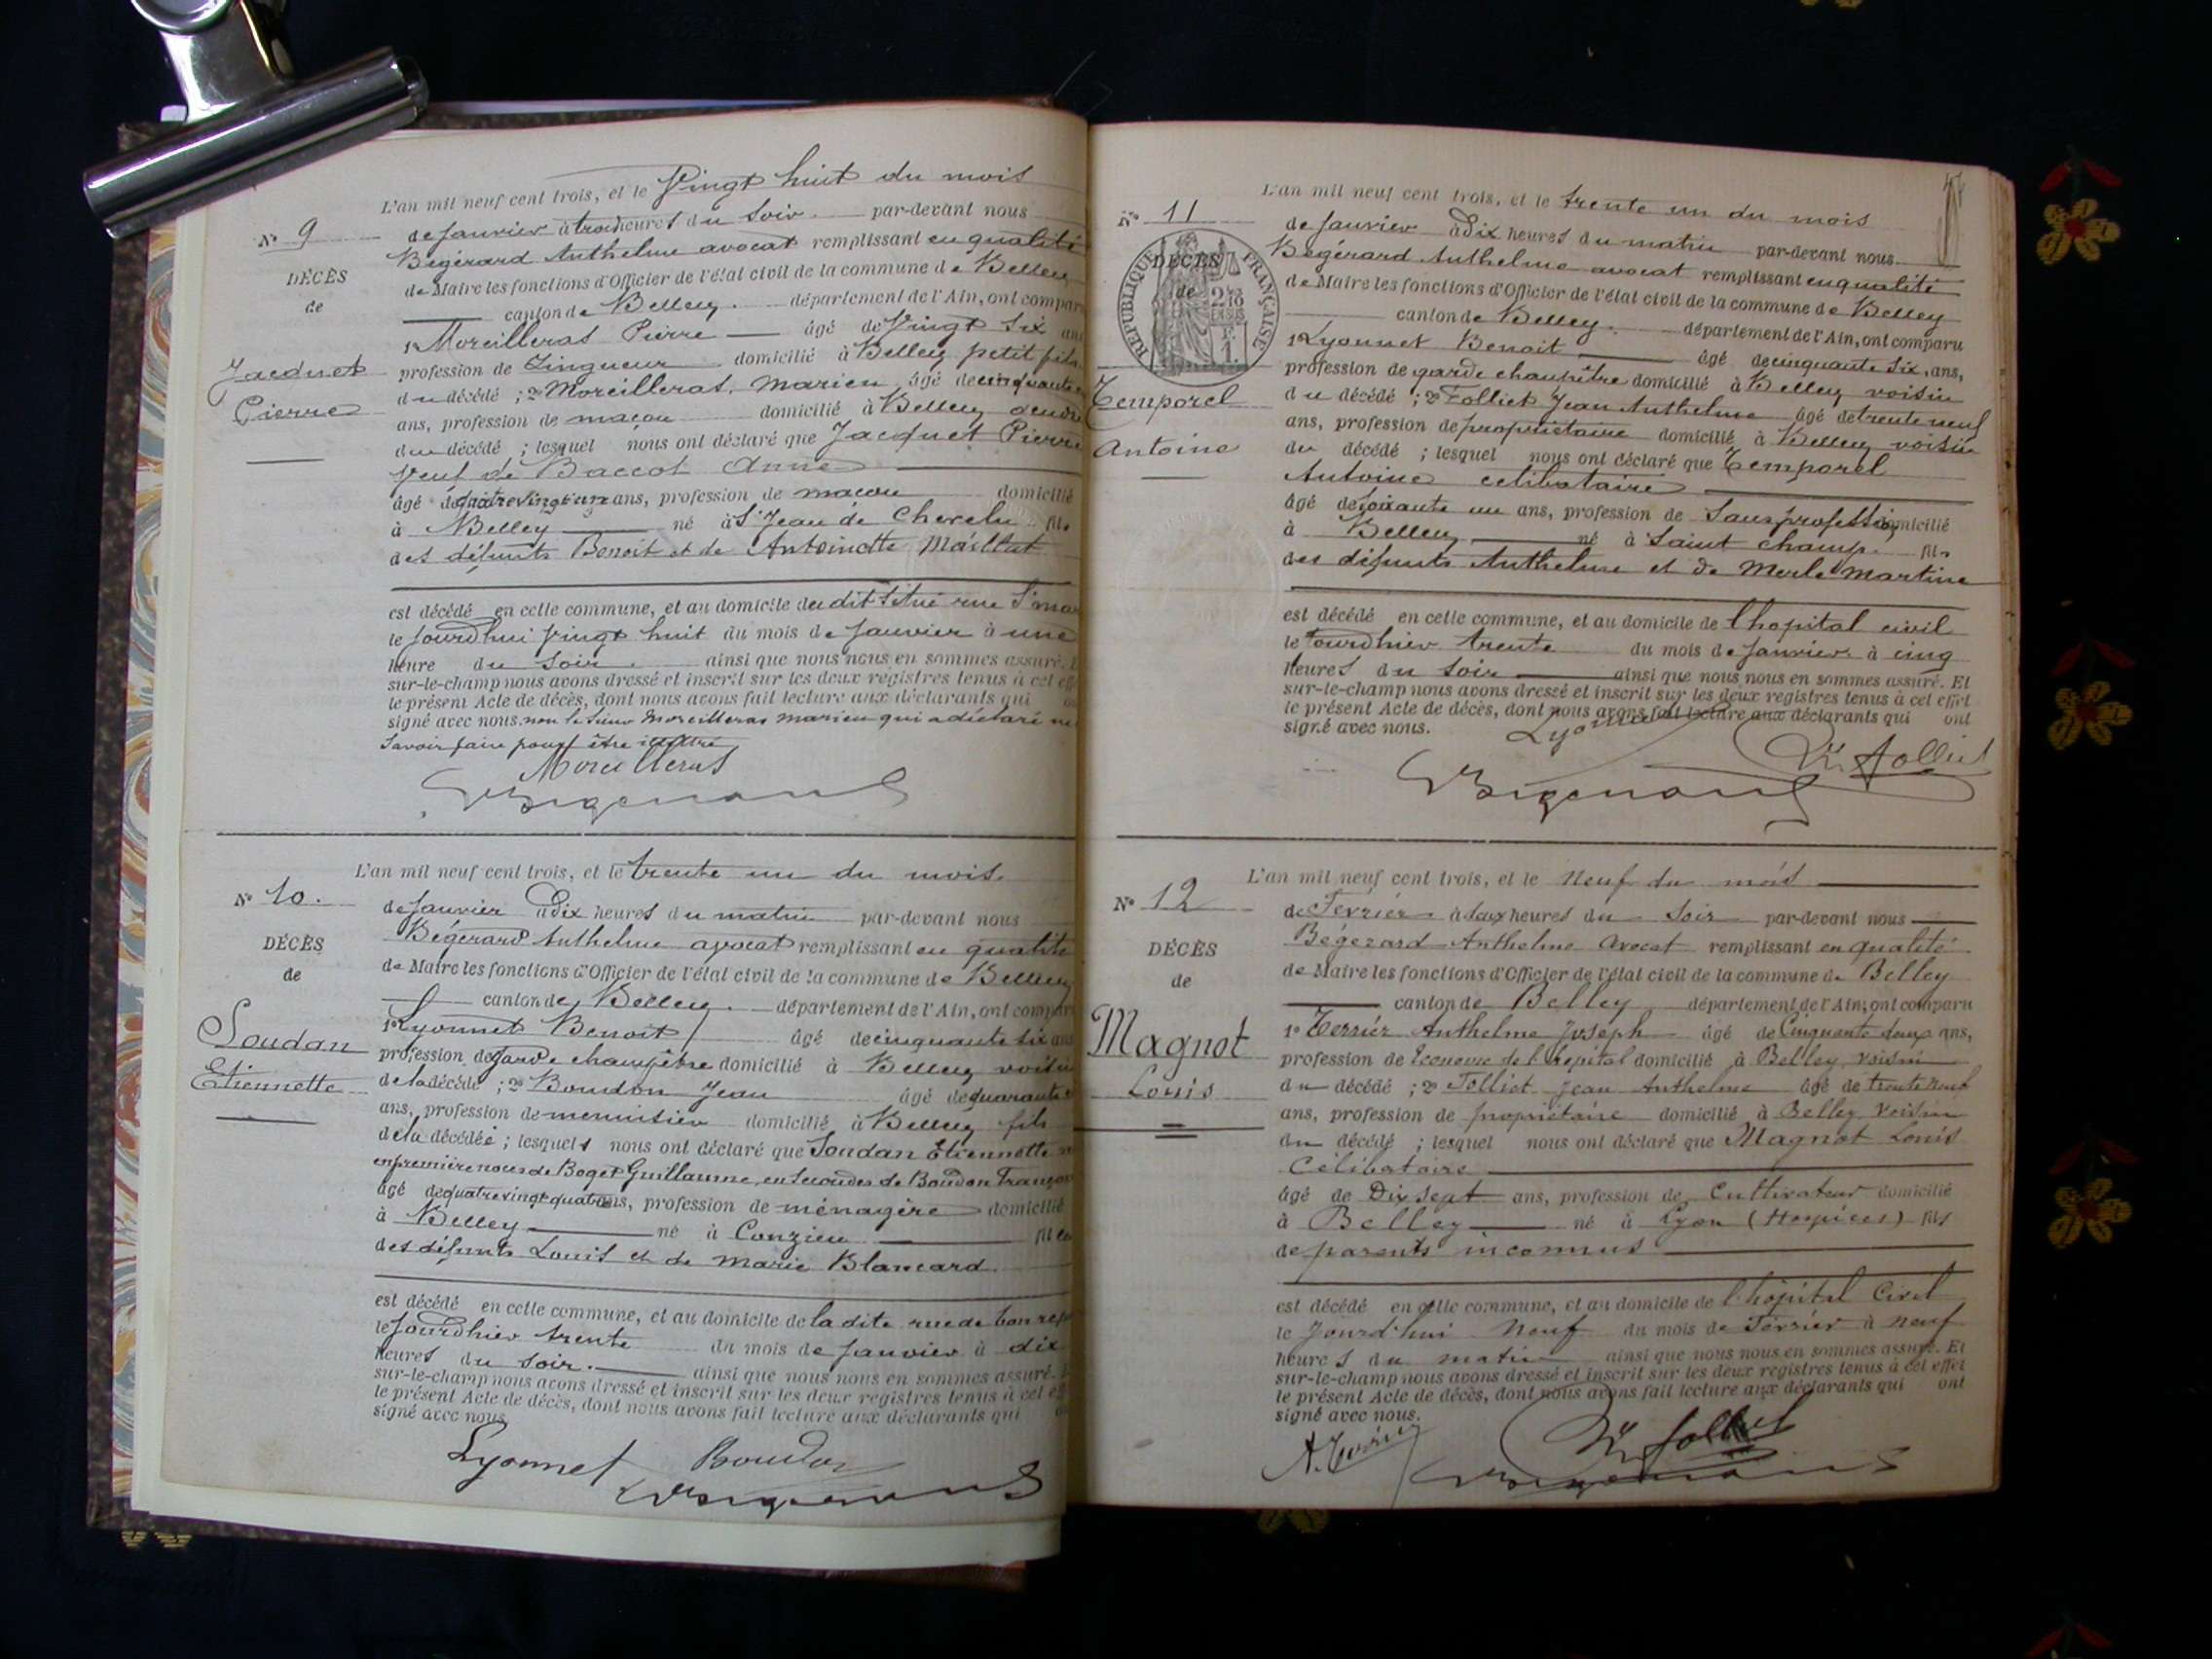 L'an mil neuf cent trois, et le Vingt huit du mois
N° 9
de Janvier à trois heures du soir par-devant nous
Bégérard Anthelme avocat remplissant en qualité
DÉCÈS
de Maire les fonctions d'Officier de l'état civil de la commune de Belley
de
canton de Belley. département de l'Ain, ont comparu
1° Morcilleras Pierre âgé de Vingt six ans
Jacquet
profession de Zingueur domicilié à Belley petit fils
du décédé ; 2° Morcilleras, Marien, âgé de cinquante
Pierre
ans, profession de maçon domicilié à Belley gendre
du décédé ; lesquel nous ont déclaré que Jacquet Pierre
Veuf de Baccot Anne
âgé de quatre vingt un ans, profession de maçon domicilié
à Belley né à St Jean de Chevelu fils
des défunts Benoit et de Antoinette Maillat
est décédé en cette commune, et au domicile du dit situé rue St
le Jourd'hui Vingt huit du mois de Janvier à une
heure du soir. ainsi que nous nous en sommes assuré. Et
sur-le-champ nous avons dressé et inscrit sur les deux registres tenus à cet effet
le présent Acte de décès, dont nous avons fait lecture aux déclarants qui ont
signé avec nous. non le Sieur Morcilleras Marien qui a déclaré ne
Savoir faire pour être illettré
Morcilleras
Bégérard
L'an mil neuf cent trois, et le trente un du mois
N° 10.
de Janvier à Dix heures du matin par-devant nous
DÉCÈS
Bégérard Anthelme avocat remplissant en qualité
de
de Maire les fonctions d'Officier de l'état civil de la commune de Belley
canton de Belley. département de l'Ain, ont comparu
Soudan
1° Lyonnet Benoit âgé de cinquante six ans
profession de garde champêtre domicilié à Belley voisin
Etiennette
de la décédé ; 2° Boudon Jean âgé de quarante
ans, profession de menuisier domicilié à Belley fils
de la décédée ; lesquels nous ont déclaré que Soudan Etiennette
en première noces de Boget Guillaume, en Secondes de Boudon François
âgé de quatre vingt quatre ans, profession de ménagère domicilié
à Belley né à Conzieu fille
des défunts Louis et de Marie Blancard
est décédé en cette commune, et au domicile de la dite rue de bon repos
le Jourd'hier trente du mois de Janvier à dix
heures du soir. ainsi que nous nous en sommes assuré. Et
sur-le-champ nous avons dressé et inscrit sur les deux registres tenus à cet effet
le présent Acte de décès, dont nous avons fait lecture aux déclarants qui
signé avec nous
Lyonnet Boudon
Bégérard
L'an mil neuf cent trois, et le trente un du mois
N° 11
de Janvier à Dix heures du matin par-devant nous
RÉPUBLIQUE FRANÇAISE
DÉCÈS
Bégérard Anthelme avocat remplissant en qualité
de
de Maire les fonctions d'Officier de l'état civil de la commune de Belley
canton de Belley. département de l'Ain, ont comparu
1° Lyonnet Benoit âgé de cinquante six, ans,
profession de garde champêtre domicilié à Belley voisin
Temporel
du décédé ; 2° Folliet Jean Anthelme âgé de trente neuf
ans, profession de propriétaire domicilié à Belley voisin
Antoine
du décédé ; lesquel nous ont déclaré que Temporel
Antoine célibataire
âgé de soixante un ans, profession de Sans profession domicilié
à Belley né à Saint Champ. fils
des défunts Anthelme et de Merle Martine
est décédé en cette commune, et au domicile de l'hopital civil
le Jourd'hier trente du mois de Janvier à cinq
heures du soir ainsi que nous nous en sommes assuré. Et
sur-le-champ nous avons dressé et inscrit sur les deux registres tenus à cet effet
le présent Acte de décès, dont nous avons fait lecture aux déclarants qui ont
signé avec nous.
Lyonnet
Folliet
Bégérard
L'an mil neuf cent trois, et le Neuf du mois
N° 12
de Février à deux heures du Soir par-devant nous
Bégérard Anthelme Avocat remplissant en qualité
DÉCÈS
de Maire les fonctions d'Officier de l'état civil de la commune de Belley
de
canton de Belley département de l'Ain, ont comparu
Magnot
1° Terrier Anthelme Joseph âgé de Cinquante deux ans,
profession de Econome de l'hopital domicilié à Belley, voisin
Louis
du décédé ; 2° Folliet Jean Anthelme âgé de trente neuf
ans, profession de propriétaire domicilié à Belley Voisin
du décédé ; lesquel nous ont déclaré que Magnot Louis
Célibataire
âgé de Dix sept ans, profession de Cultivateur domicilié
à Belley né à Lyon (Hospices) fils
de parents inconnus
est décédé en cette commune, et au domicile de l'hôpital Civil
le Jourd'hui Neuf du mois de Février à neuf
heures du matin ainsi que nous nous en sommes assuré. Et
sur-le-champ nous avons dressé et inscrit sur les deux registres tenus à cet effet
le présent Acte de décès, dont nous avons fait lecture aux déclarants qui ont
signé avec nous.
A. Terrier
Folliet
Bégérard